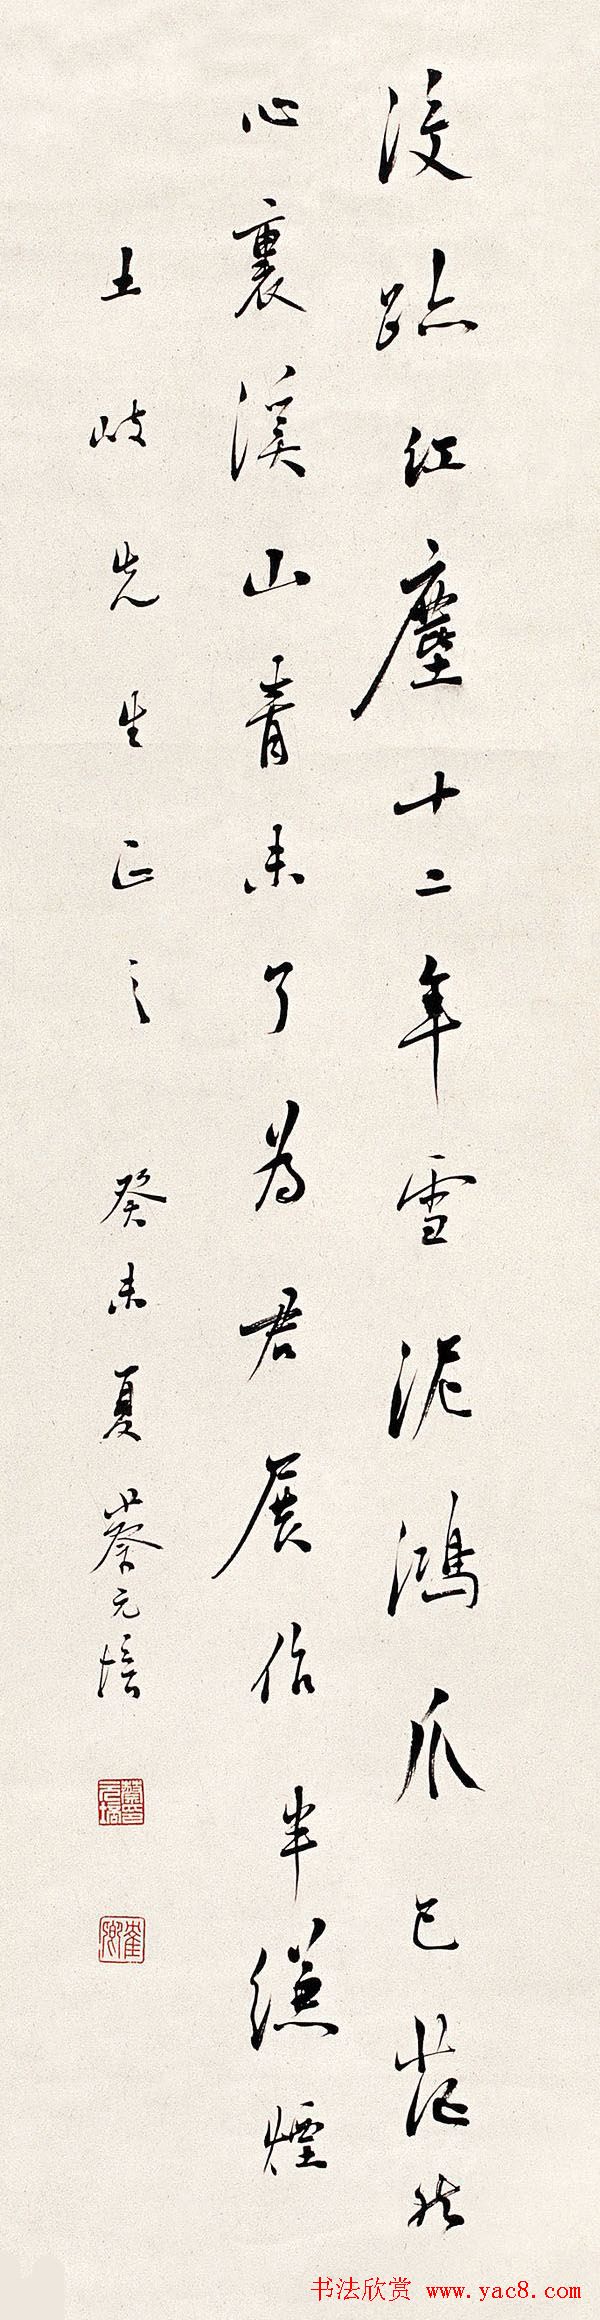 没跡紅塵十二年雪泥鴻爪已茫然
心裏溪山青未了為君展作半縑煙
土岐先生正之 癸未夏 蔡元培
蔡印元培
书法欣赏 www.yac8.com